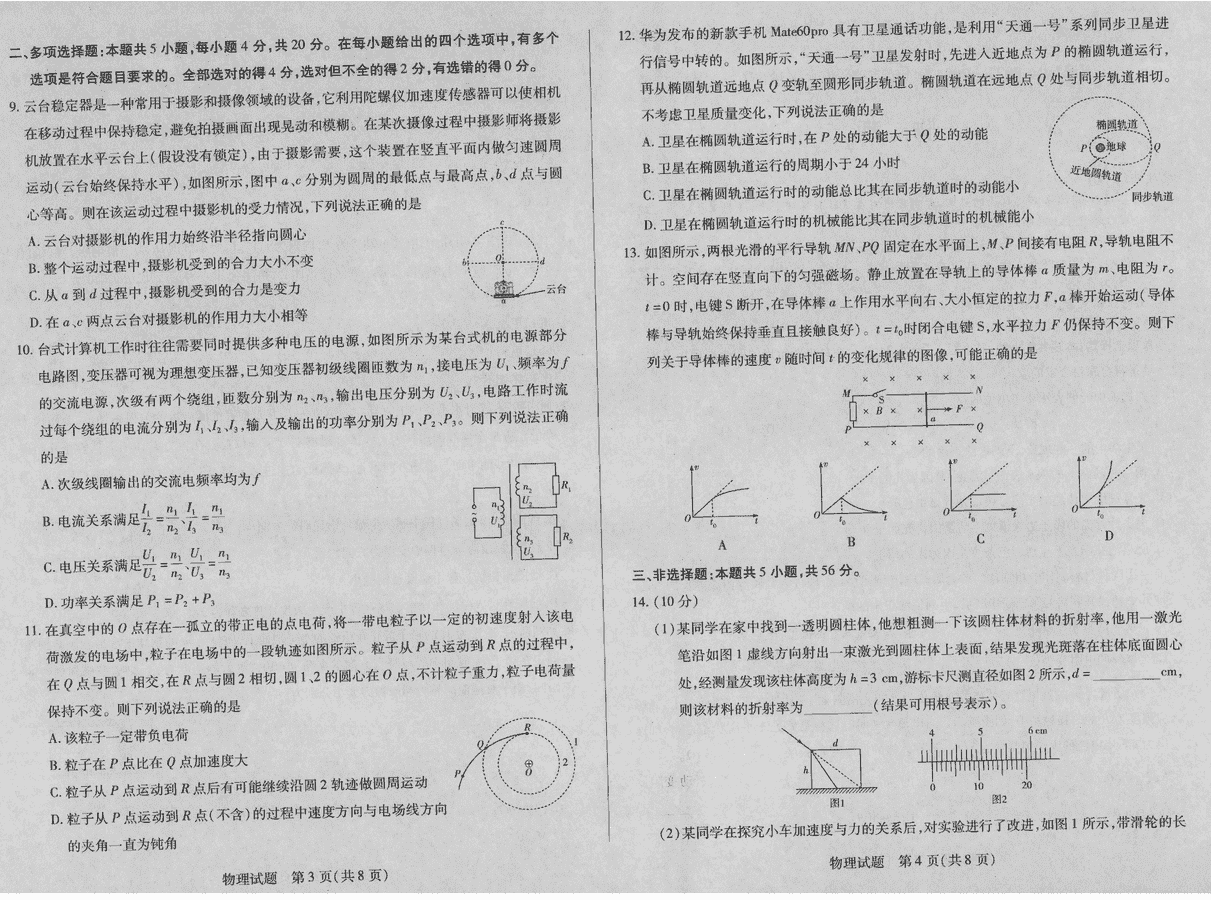 二、多项选择题:本题共5小题,每小题4分,共20分。在每小题给出的四个选项中,有多个
选项是符合题目要求的。全部选对的得4分,选对但不全的得2分,有选错的得0分。
9. 云台稳定器是一种常用于摄影和摄像领域的设备,它利用陀螺仪加速度传感器可以使相机
在移动过程中保持稳定,避免拍摄画面出现晃动和模糊。在某次摄像过程中摄影师将摄影
机放置在水平云台上(假设没有锁定),由于摄影需要,这个装置在竖直平面内做匀速圆周
运动(云台始终保持水平),如图所示,图中a、c分别为圆周的最低点与最高点,b、d点与圆
心等高。则在该运动过程中摄影机的受力情况,下列说法正确的是
A. 云台对摄影机的作用力始终沿半径指向圆心
B. 整个运动过程中,摄影机受到的合力大小不变
C. 从a到d过程中,摄影机受到的合力是变力
D. 在a、c两点云台对摄影机的作用力大小相等
c
b
O
d
a
云台
10. 台式计算机工作时往往需要同时提供多种电压的电源,如图所示为某台式机的电源部分
电路图,变压器可视为理想变压器,已知变压器初级线圈匝数为n₁,接电压为U₁、频率为f
的交流电源,次级有两个绕组,匝数分别为n₂、n₃,输出电压分别为U₂、U₃,电路工作时流
过每个绕组的电流分别为I₁、I₂、I₃,输入及输出的功率分别为P₁、P₂、P₃。则下列说法正确
的是
A. 次级线圈输出的交流电频率均为f
B. 电流关系满足I₁/I₂=n₁/n₂、I₁/I₃=n₁/n₃
C. 电压关系满足U₁/U₂=n₁/n₂、U₁/U₃=n₁/n₃
D. 功率关系满足P₁=P₂+P₃
n₂
U₂
R₁
n₃
U₃
R₂
11. 在真空中的O点存在一孤立的带正电的点电荷,将一带电粒子以一定的初速度射入该电
荷激发的电场中,粒子在电场中的一段轨迹如图所示。粒子从P点运动到R点的过程中,
在Q点与圆1相交,在R点与圆2相切,圆1、2的圆心在O点,不计粒子重力,粒子电荷量
保持不变。则下列说法正确的是
A. 该粒子一定带负电荷
B. 粒子在P点比在Q点加速度大
C. 粒子从P点运动到R点后有可能继续沿圆2轨迹做圆周运动
D. 粒子从P点运动到R点(不含)的过程中速度方向与电场线方向
的夹角一直为钝角
R
Q
1
2
P
O
物理试题 第3页(共8页)
12. 华为发布的新款手机Mate60pro具有卫星通话功能,是利用“天通一号”系列同步卫星进
行信号中转的。如图所示,“天通一号”卫星发射时,先进入近地点为P的椭圆轨道运行,
再从椭圆轨道远地点Q变轨至圆形同步轨道。椭圆轨道在远地点Q处与同步轨道相切。
不考虑卫星质量变化,下列说法正确的是
A. 卫星在椭圆轨道运行时,在P处的动能大于Q处的动能
B. 卫星在椭圆轨道运行的周期小于24小时
C. 卫星在椭圆轨道运行时的动能总比其在同步轨道时的动能小
D. 卫星在椭圆轨道运行时的机械能比其在同步轨道时的机械能小
椭圆轨道
P
地球
Q
近地圆轨道
同步轨道
13. 如图所示,两根光滑的平行导轨MN、PQ固定在水平面上,M、P间接有电阻R,导轨电阻不
计。空间存在竖直向下的匀强磁场。静止放置在导轨上的导体棒a质量为m、电阻为r。
t=0时,电键S断开,在导体棒a上作用水平向右、大小恒定的拉力F,a棒开始运动(导体
棒与导轨始终保持垂直且接触良好)。t=t₀时闭合电键S,水平拉力F仍保持不变。则下
列关于导体棒的速度v随时间t的变化规律的图像,可能正确的是
× × × × ×
M
S
N
× B × × F ×
a
P
Q
× × × × ×
v
v
v
v
O t₀ t
O t₀ t
O t₀ t
O t₀ t
A
B
C
D
三、非选择题:本题共5小题,共56分。
14. (10分)
(1)某同学在家中找到一透明圆柱体,他想粗测一下该圆柱体材料的折射率,他用一激光
笔沿如图1虚线方向射出一束激光到圆柱体上表面,结果发现光斑落在柱体底面圆心
处,经测量发现该柱体高度为h=3 cm,游标卡尺测直径如图2所示,d=________cm,
则该材料的折射率为________(结果可用根号表示)。
d
h
图1
4 5 6 cm
0 10 20
图2
(2)某同学在探究小车加速度与力的关系后,对实验进行了改进,如图1所示,带滑轮的长
物理试题 第4页(共8页)